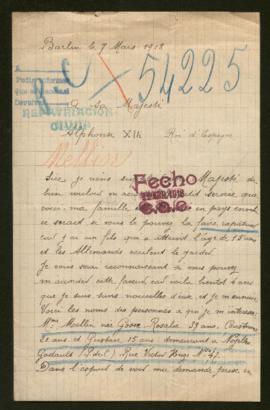 Barlin le 7 Mars 1918
54225
A Sa Majesté
REPATRIACION
CIVIL
Alphonse XIII Roi d'Espagne
Mellin
Fecho
Sire je viens Majesté de
bien vouloir service que
voici ma famille en pays envahi
ce serait si vous le pouvez la faire rapatrier
car j'ai un fils qui a atteint l'age de 15 ans
et les Allemands veulent le garder.
Je vous serai reconnaissant si vous pouvez
m'accorder cette faveur car voila bientot 6 mois
que je suis sans nouvelles d'eux et je m'ennuie
Voici les noms des personnes a qui je m'interesse
Mme Mellin née Rosalie 39 ans,
et Gustave 15 ans demeurant a Noyelles
Godault (P. de C.) Rue Victor Hugo No 47.
Dans l'espoir de voir ma demande prise en